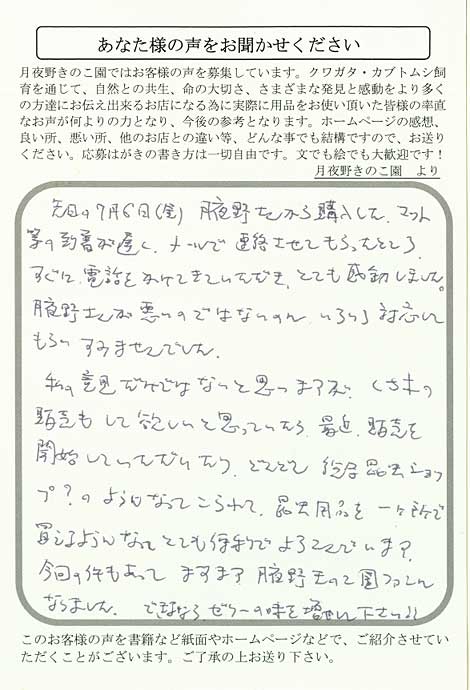 あなた様の声をお聞かせください
月夜野きのこ園ではお客様の声を募集しています。クワガタ・カブトムシ飼
育を通じて、自然との共生、命の大切さ、さまざまな発見と感動をより多く
の方達にお伝え出来るお店になる為に実際に用品をお使い頂いた皆様の率直
なお声が何よりの力となり、今後の参考となります。ホームページの感想、
良い所、悪い所、他のお店との違い等、どんな事でも結構ですので、お送り
ください。応募はがきの書き方は一切自由です。文でも絵でも大歓迎です！
月夜野きのこ園　より
先日の7月6日(金) 月夜野さんから購入した、マット
等の到着が遅く、メールで連絡させてもらったところ、
すぐに、電話をかけてきていただき、とても感動しました。
月夜野さんが悪いのではないのに、いろいろ対応して
もらい すみませんでした。
私の意見だけではないと思いますが、くち木の
販売もして欲しいと思っていたら、最近、販売を
開始していただいたり、どんどん 総合昆虫ショッ
プ？のようになってこられて、昆虫用品を一ヶ所で
買えるようになって とても便利で よろこんでいます。
今回の件もあって ますます 月夜野きのこ園ファンに
なりました。 できるなら、ゼリーの味を増せして下さい!!
このお客様の声を書籍など紙面やホームページなどで、ご紹介させてい
ただくことがございます。ご了承の上お送り下さい。